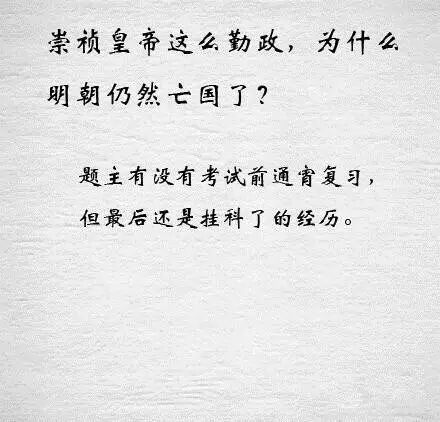 崇祯皇帝这么勤政，为什么
明朝仍然亡国了？
题主有没有考试前通宵复习，
但最后还是挂科了的经历。